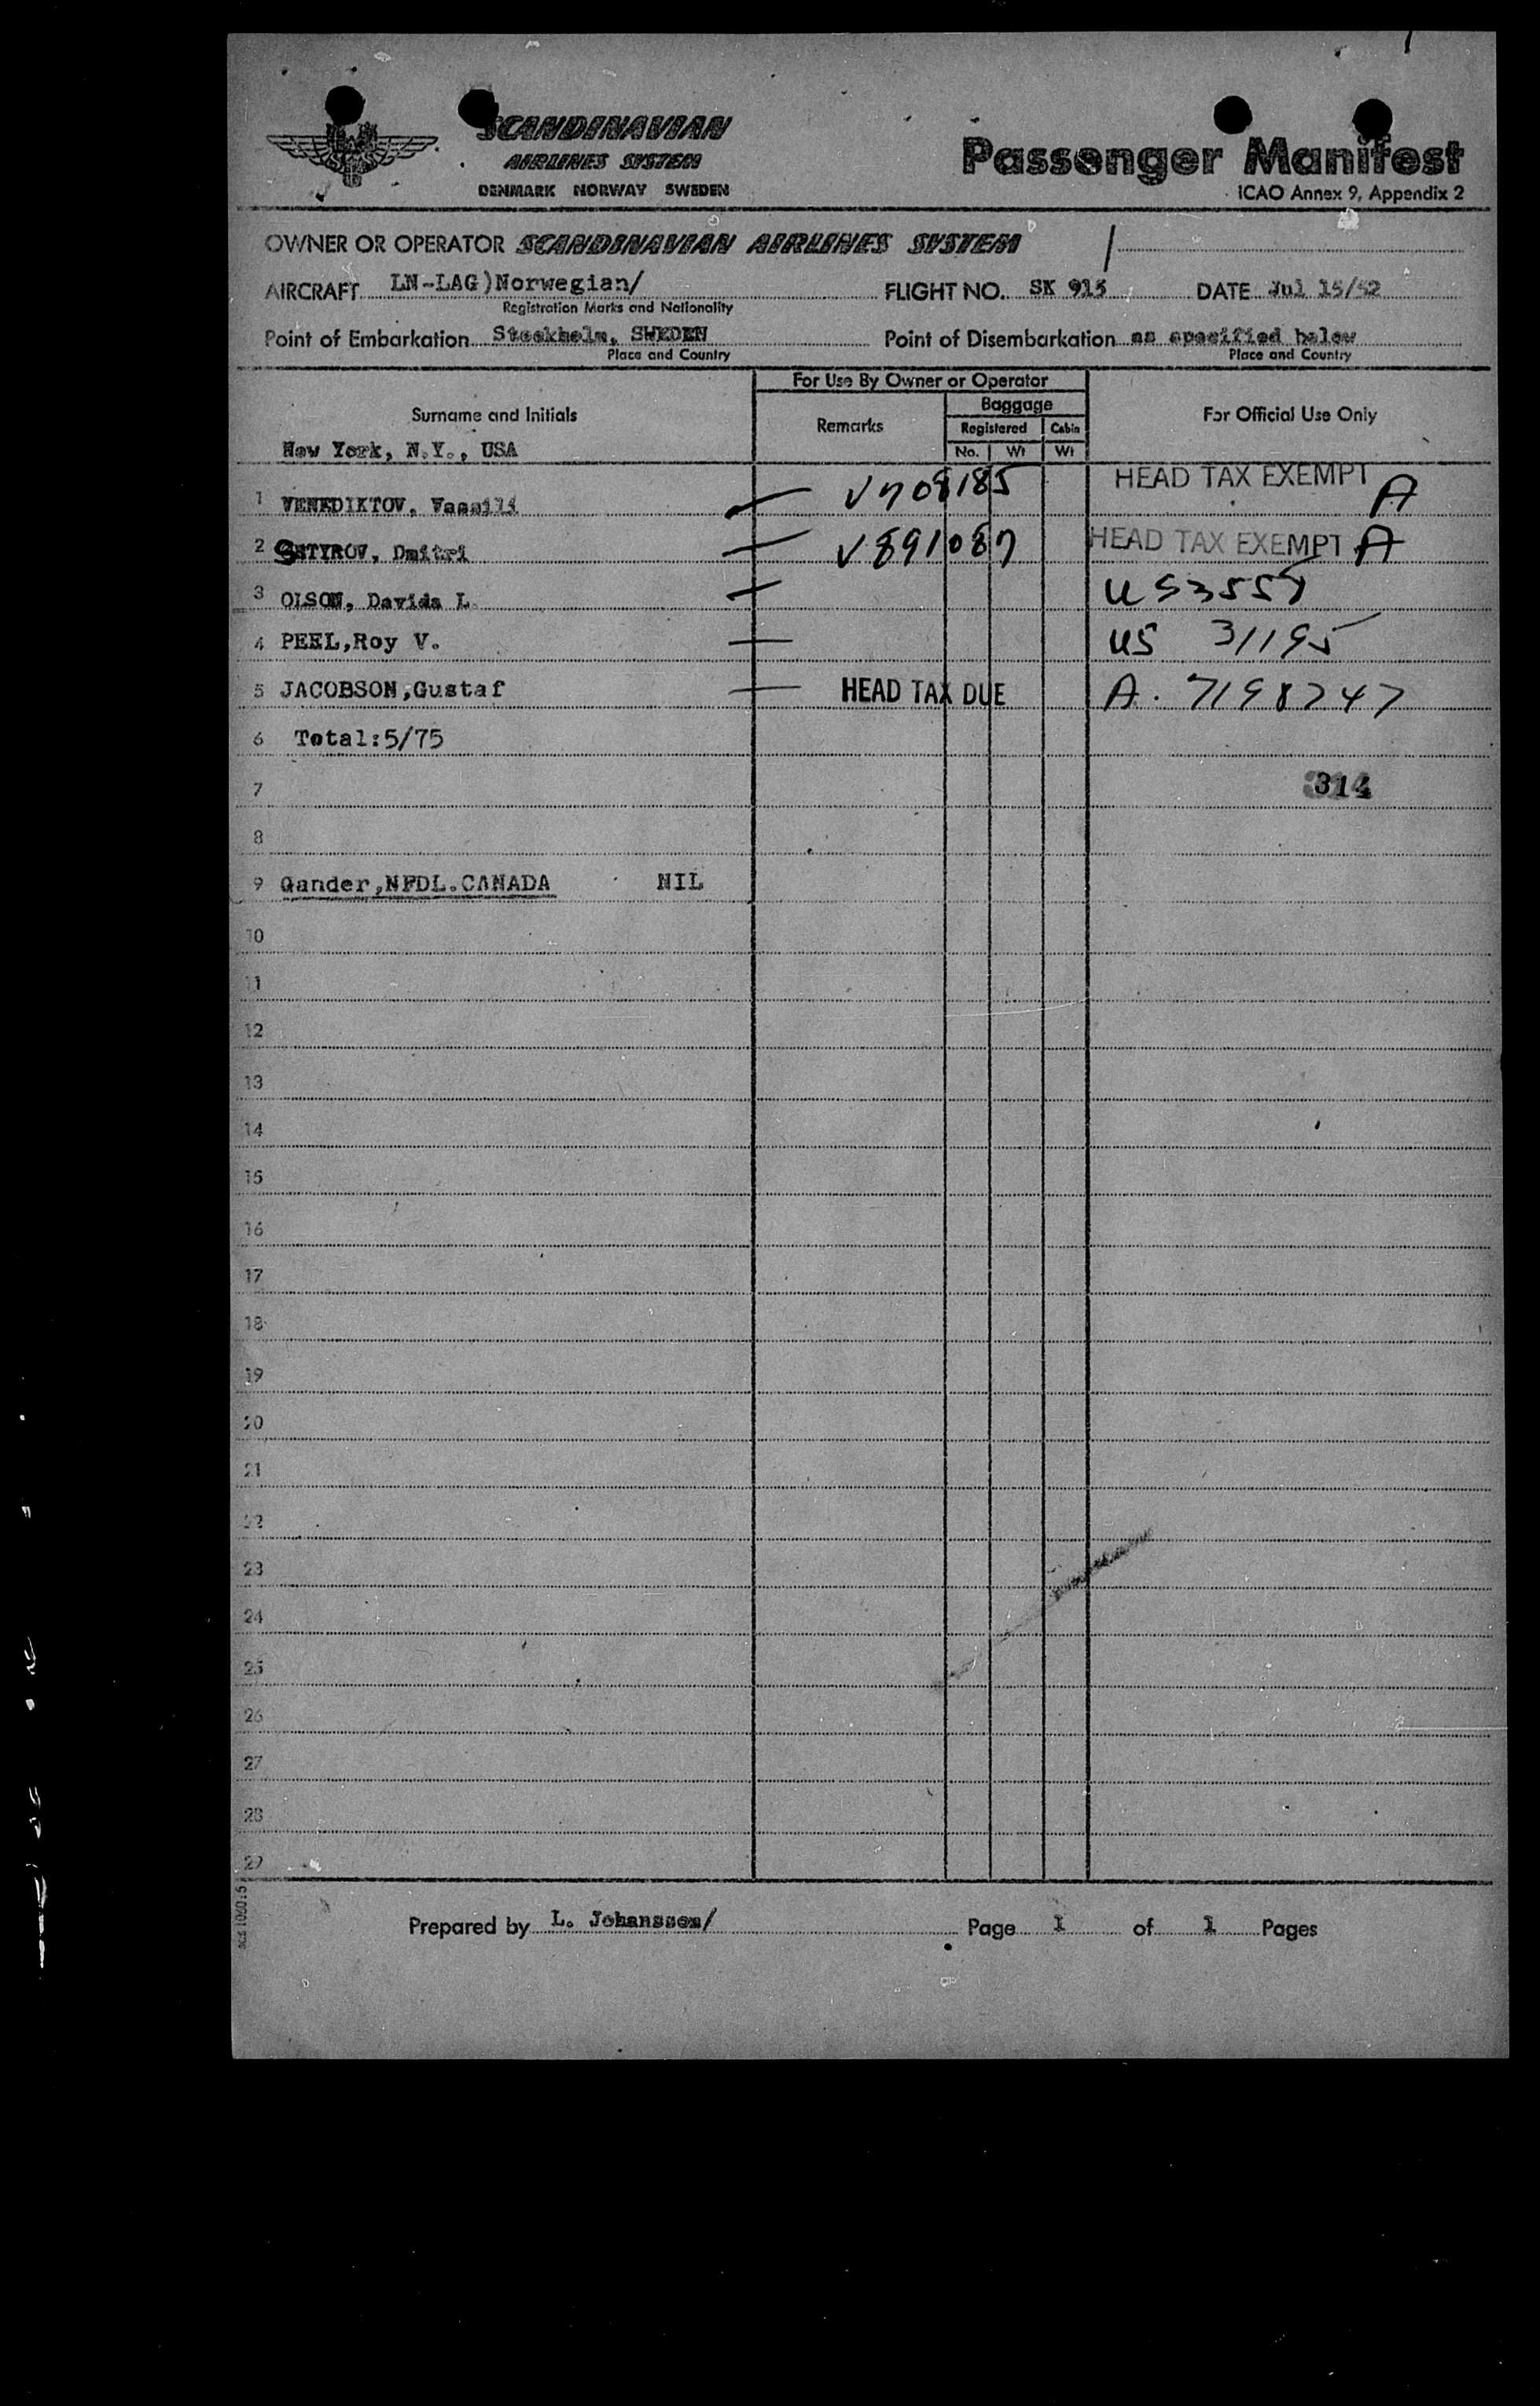 SCANDINAVIAN
AIRLINES SYSTEM
DENMARK NORWAY SWEDEN
Passenger Manifest
ICAO Annex 9, Appendix 2
OWNER OR OPERATOR SCANDINAVIAN AIRLINES SYSTEM
AIRCRAFT LN-LAG)Norwegian/ FLIGHT NO. SK 915 DATE Jul 15/52
Registration Marks and Nationality
Point of Embarkation Stockholm, SWEDEN Point of Disembarkation as specified below
Place and Country Place and Country
For Use By Owner or Operator
Surname and Initials Remarks Baggage For Official Use Only
Registered Cabin
No. Wt Wt
New York, N.Y., USA
1 VENEDIKTOV, Vassili V708185 HEAD TAX EXEMPT A
2 STYROV, Dmitri V891087 HEAD TAX EXEMPT A
3 OLSON, Davida L US
4 PEEL,Roy V. US 31195
5 JACOBSON,Gustaf HEAD TAX DUE A. 7198747
6 Total:5/75
7 314
8
9 Gander,NFDL.CANADA NIL
10
11
12
13
14
15
16
17
18
19
20
21
22
23
24
25
26
27
28
29
Prepared by L. Johansson/ Page 1 of 1 Pages